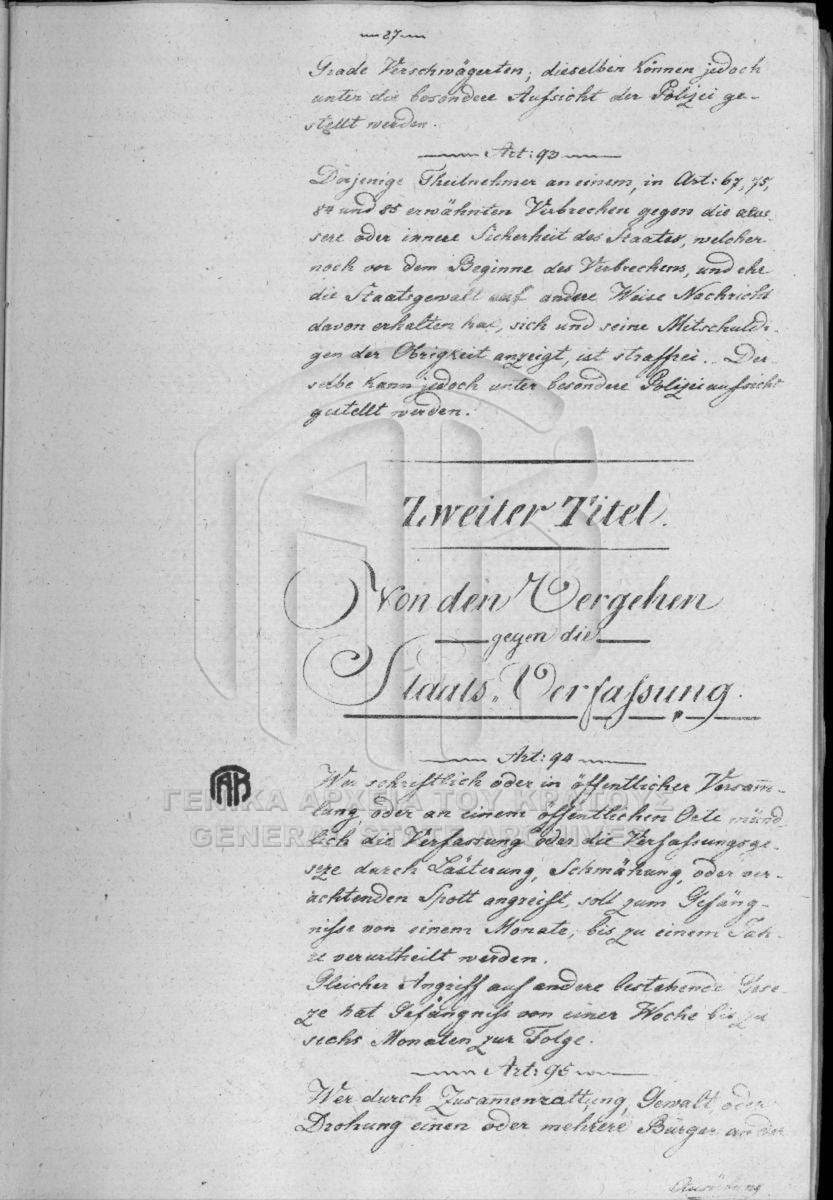 27
Grade Verschwägerten; dieselben können jedoch
unter die besondere Aufsicht der Polizei ge-
stellt werden.
Art: 93
Derjenige Theilnehmer an einem, in Art: 67, 75,
84 und 85 erwähnten Verbrechen gegen die äus-
sere oder innere Sicherheit des Staates, welcher
noch vor dem Beginne des Verbrechens, und ehe
die Staatsgewalt auf andere Weise Nachricht
davon erhalten hat, sich und seine Mitschuldi-
gen der Obrigkeit anzeigt, ist straffrei. Der-
selbe kann jedoch unter besondere Polizeiaufsicht
gestellt werden.
Zweiter Titel.
Von den Vergehen
gegen die
Staats-Verfassung.
Art: 94
Wer schriftlich oder in öffentlicher Versam̅-
lung, oder an einem öffentlichen Orte münd-
lich die Verfassung oder die Verfassungsge-
seze durch Lästerung, Schmähung, oder ver-
achtenden Spott angreift, soll zum Gefäng-
nisse von einem Monate, bis zu einem Jah-
re verurtheilt werden.
Gleicher Angriff auf andere bestehende Gese-
ze hat Gefängniss von einer Woche bis zu
sechs Monaten zur Folge.
Art: 95
Wer durch Zusam̅enrottung, Gewalt, oder
Drohung einen oder mehrere Bürger an der
Ausübung
ΓΕΝΙΚΑ ΑΡΧΕΙΑ ΤΟΥ ΚΡΑΤΟΥΣ
GENERAL STATE ARCHIVES